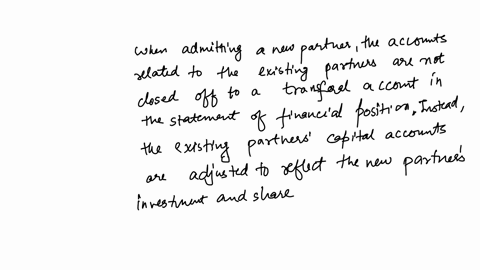 when admitting a new partner, the accounts
related to the existing partners are not
closed off to a transferal account in
the statement of financial position. Instead,
the existing partners' capital accounts
are adjusted to reflect the new partner's
investment and share